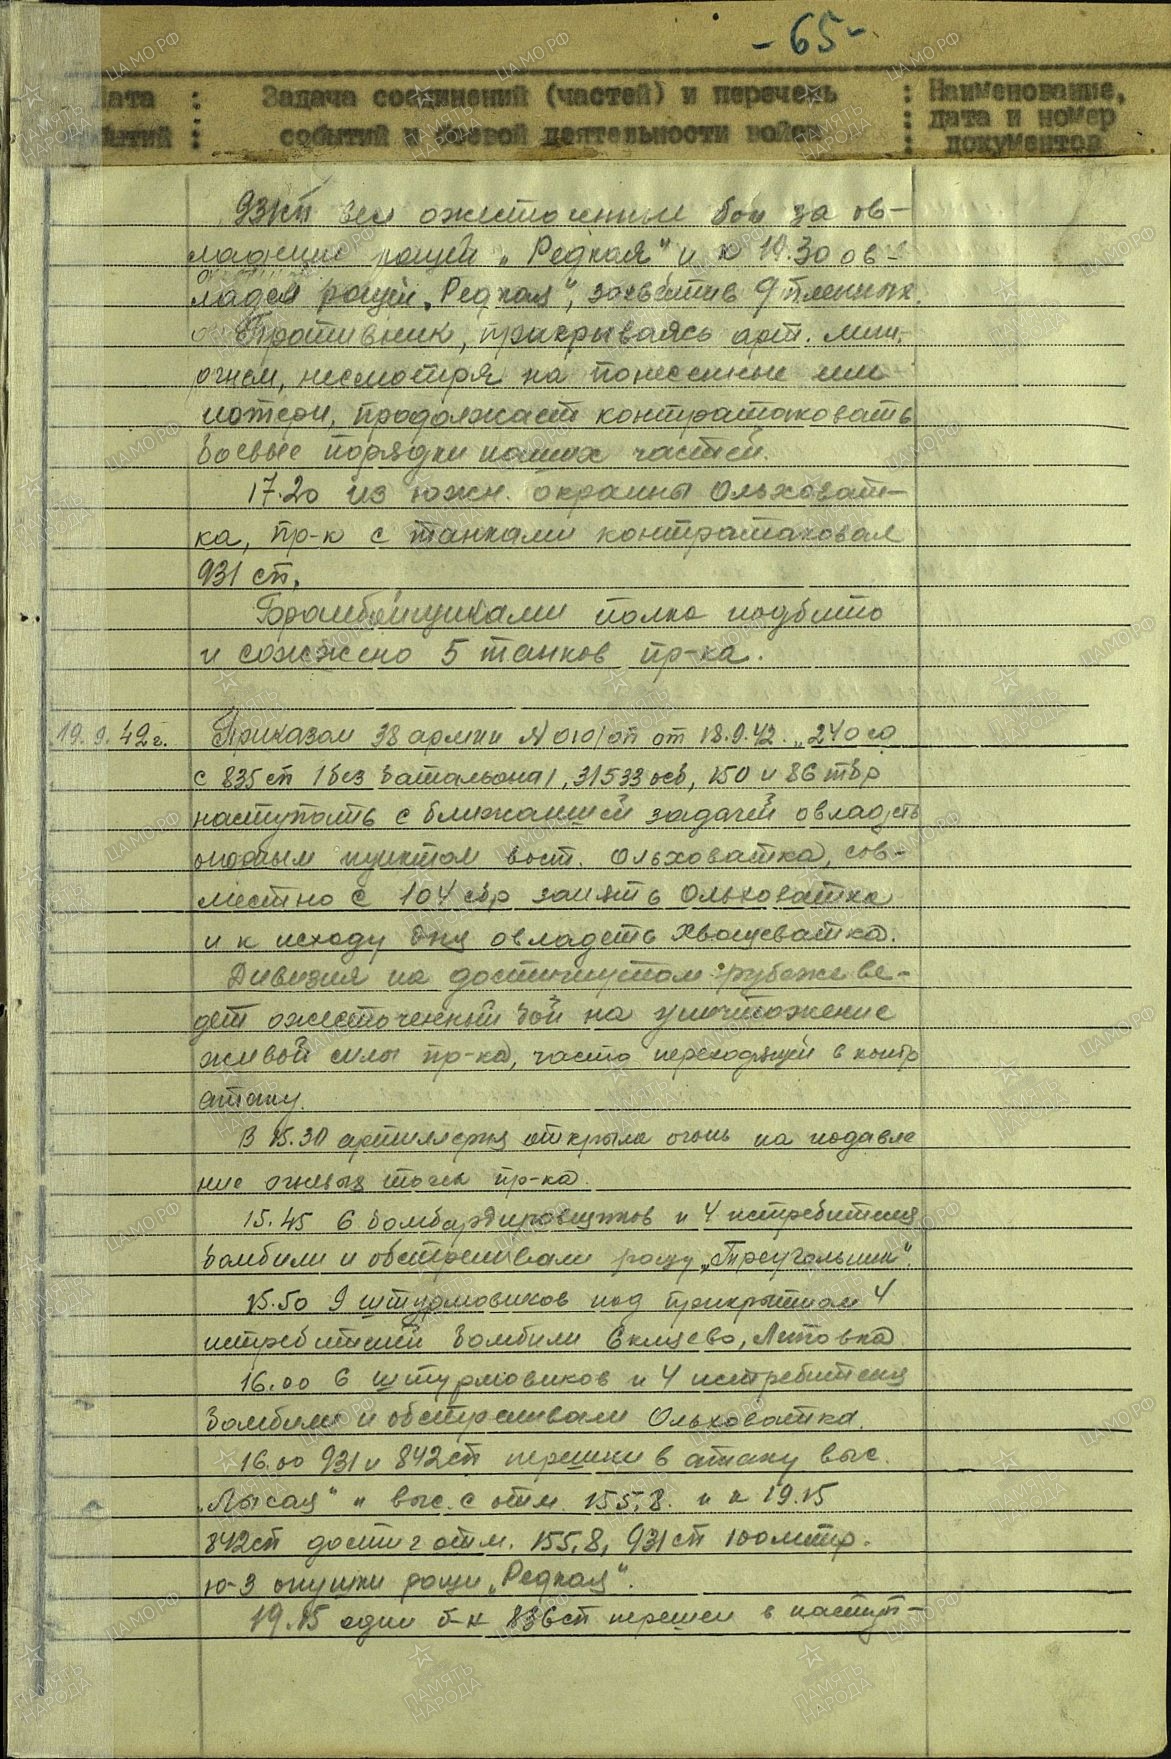 - 65 -
Дата : Задача соединений (частей) и перечень : Наименование,
событий : событий и боевой деятельности войск : дата и номер
документов
931сп вел ожесточенные бои за ов-
ладение рощей „Редкая" и к 19.30 ов-
ладел рощей „Редкая", захватив 9 пленных.
Противник, прикрываясь арт. мин.
огнем, несмотря на понесенные им
потери, продолжает контратаковать
боевые порядки наших частей.
17.20 из южн. окраины Ольховат-
ка, пр-к с танками контратаковал
931 сп.
Бронебойщиками полка подбито
и сожжено 5 танков пр-ка.
19.9.42г. Приказом 38 армии №010/оп от 18.9.42. „240 сд
с 835 сп (без батальона), 3/533 осб, 150 и 86 тбр
наступать с ближайшей задачей овладеть
опорным пунктом вост. Ольховатка, сов-
местно с 104 сбр занять Ольховатка
и к исходу дня овладеть Хвощеватка.
Дивизия на достигнутом рубеже ве-
дет ожесточенный бой на уничтожение
живой силы пр-ка, часто переходящей в контр
атаку.
В 15.30 артиллерия открыла огонь на подавле
ние огневых точек пр-ка.
15.45 6 бомбардировщиков и 4 истребителя
бомбили и обстреливали рощу „Треугольник".
15.50 9 штурмовиков под прикрытием 4
истребителей бомбили Скляево, Лютовка
16.00 6 штурмовиков и 4 истребителя
бомбили и обстреливали Ольховатка.
16.00 931 и 842сп перешли в атаку выс.
„Лысая" и выс. с отм. 155,8. и к 19.15
842сп достиг отм. 155,8, 931 сп 100 метр.
ю-з опушки рощи „Редкая".
19.15 один б-н 836сп перешел в наступ-